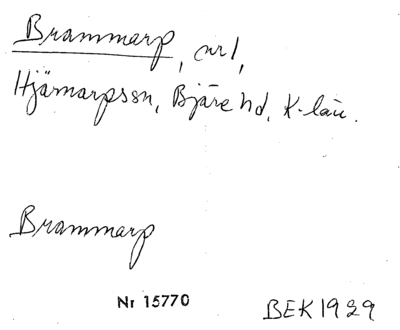 Brammarp, nr 1,
Hjärnarpssn, Bjäre hd, K-län.
Brammarp
Nr 15770 BEK 1929